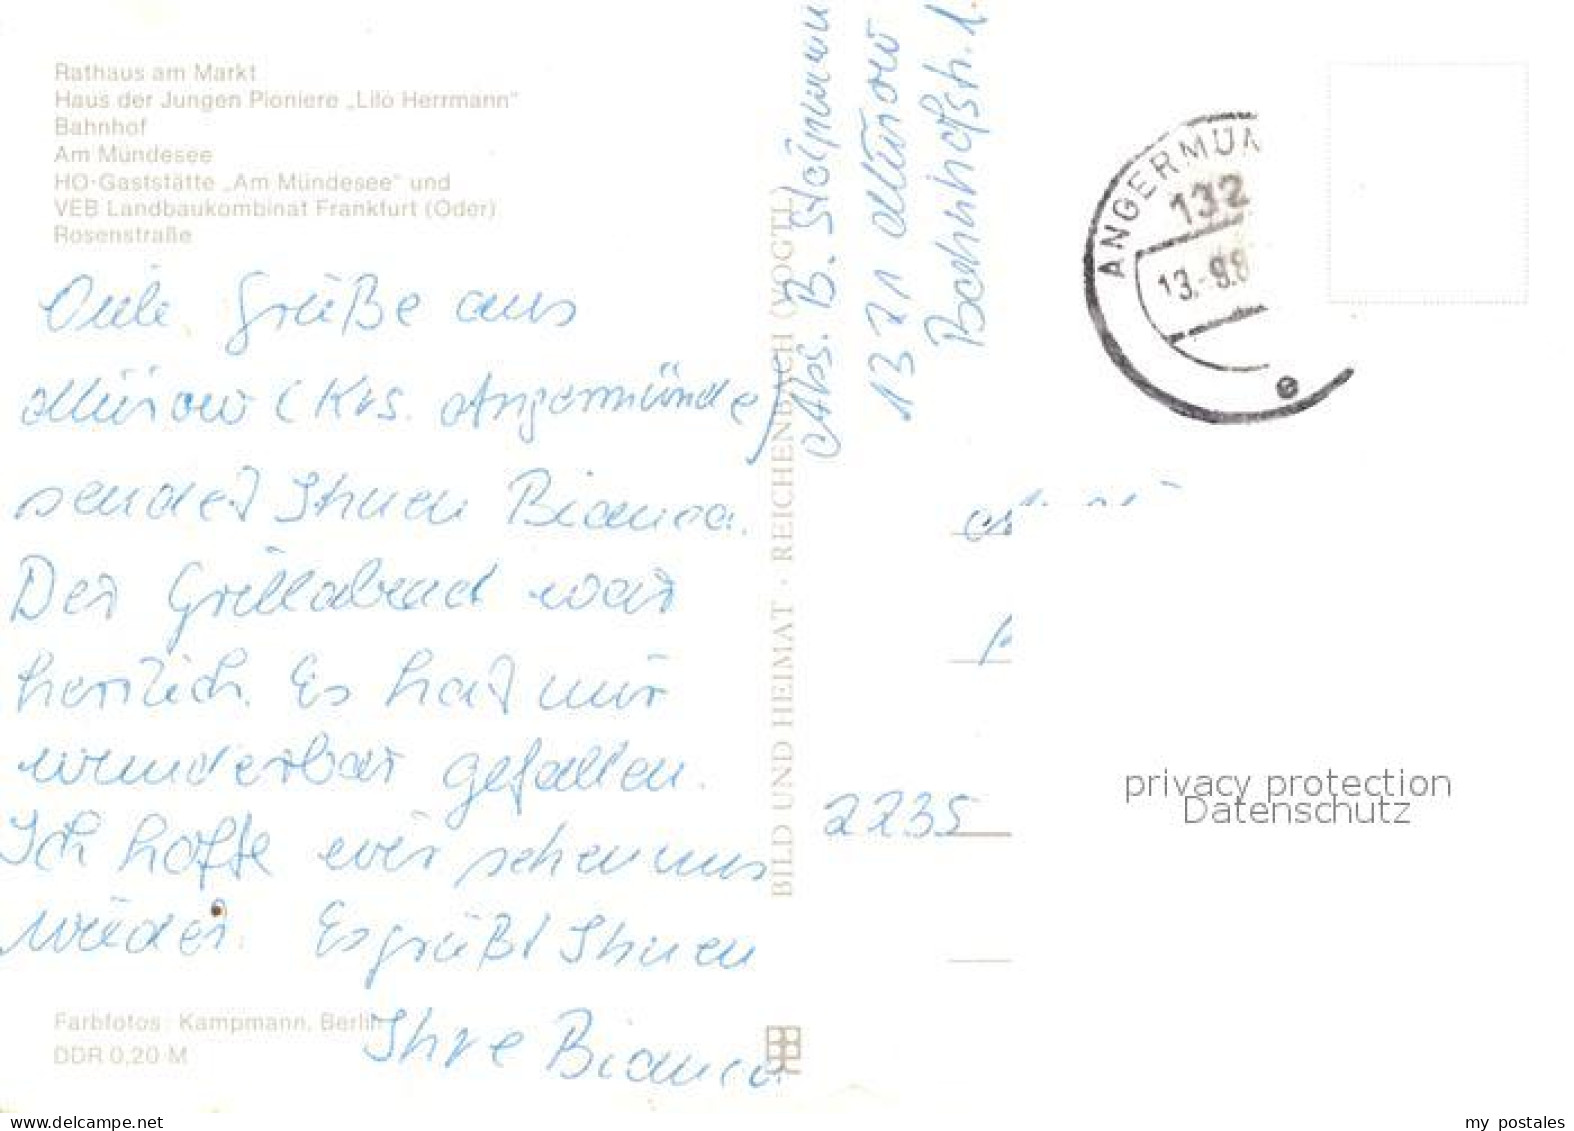 Rathaus am Markt
Haus der Jungen Pioniere „Lilo Herrmann"
Bahnhof
Am Mündesee
HO-Gaststätte „Am Mündesee" und
VEB Landbaukombinat Frankfurt (Oder)
Rosenstraße
Grüße aus
Mürow (Krs. Angermünde)
sendet Ihnen Bianca.
Der Grillabend war
herrlich. Es hat mir
wunderbar gefallen.
Ich hoffe wir sehen uns
wieder. Es grüßt Ihnen
Ihre Bianca
Farbfotos: Kampmann, Berlin
DDR 0,20 M
BILD UND HEIMAT · REICHENBACH (VOGTL)
Abs. B.
1321 Mürow
Bahnhofstr. 1
ANGERMÜN
132
13.-9.8
e
2235
privacy protection
Datenschutz
delcampe.net
my_postales